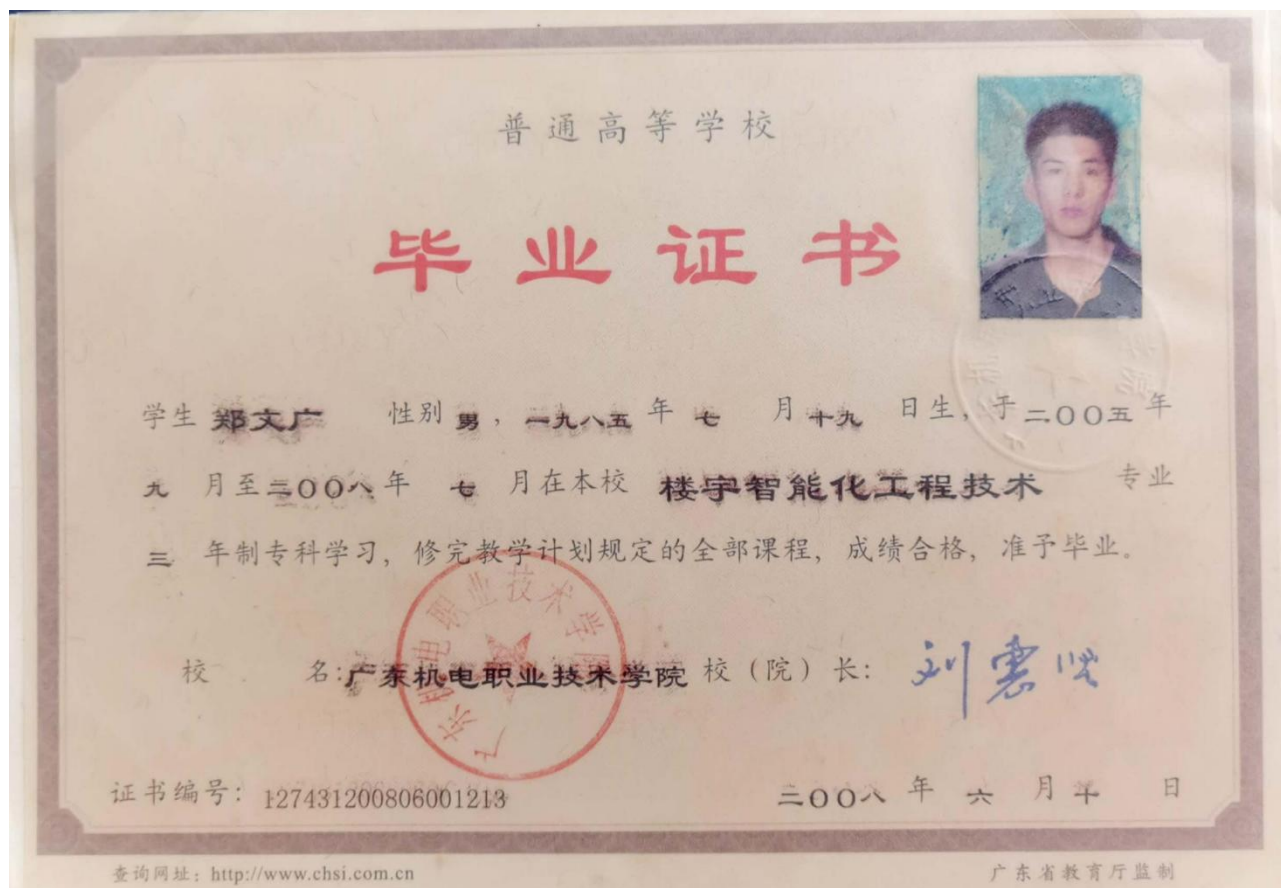 普通高等学校
毕业证书
学生 郑文广 性别 男，一九八五 年 七 月 十九 日生，于二〇〇五 年
九 月至二〇〇八 年 七 月在本校 楼宇智能化工程技术 专业
三 年制专科学习，修完教学计划规定的全部课程，成绩合格，准予毕业。
广东机电职业技术学院
校 名：广东机电职业技术学院 校（院）长：
证书编号：127431200806001213 二〇〇八 年 六 月 日
查询网址：http://www.chsi.com.cn 广东省教育厅监制